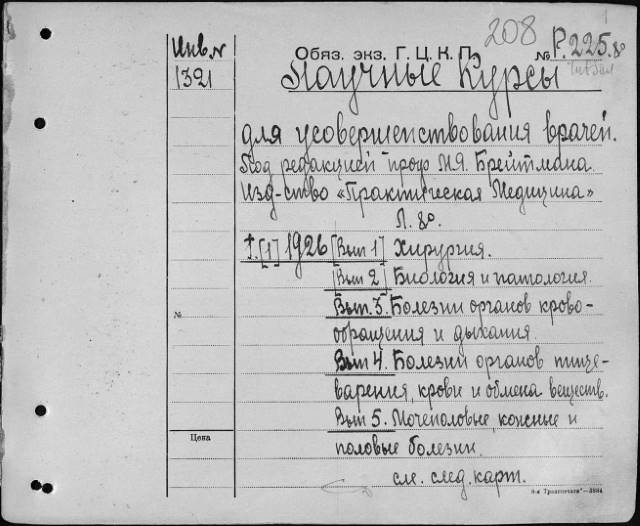 208
Инв. №
1321
Обяз. экз. Г. Ц. К. П. № Р. 225. 8°
Научные Курсы
для усовершенствования врачей.
Под редакцией проф М.Я. Брейтмана
Изд-ство «Практическая Медицина»
Л. 8°.
т. [1] 1926 [Вып 1] Хирургия.
[Вып 2] Биология и патология.
Вып. 3. Болезни органов крово-
обращения и дыхания.
№
Вып 4. Болезни органов пище-
варения, крови и обмена веществ.
Вып 5. Мочеполовые, кожные и
Цена
половые болезни.
см. след. карт.